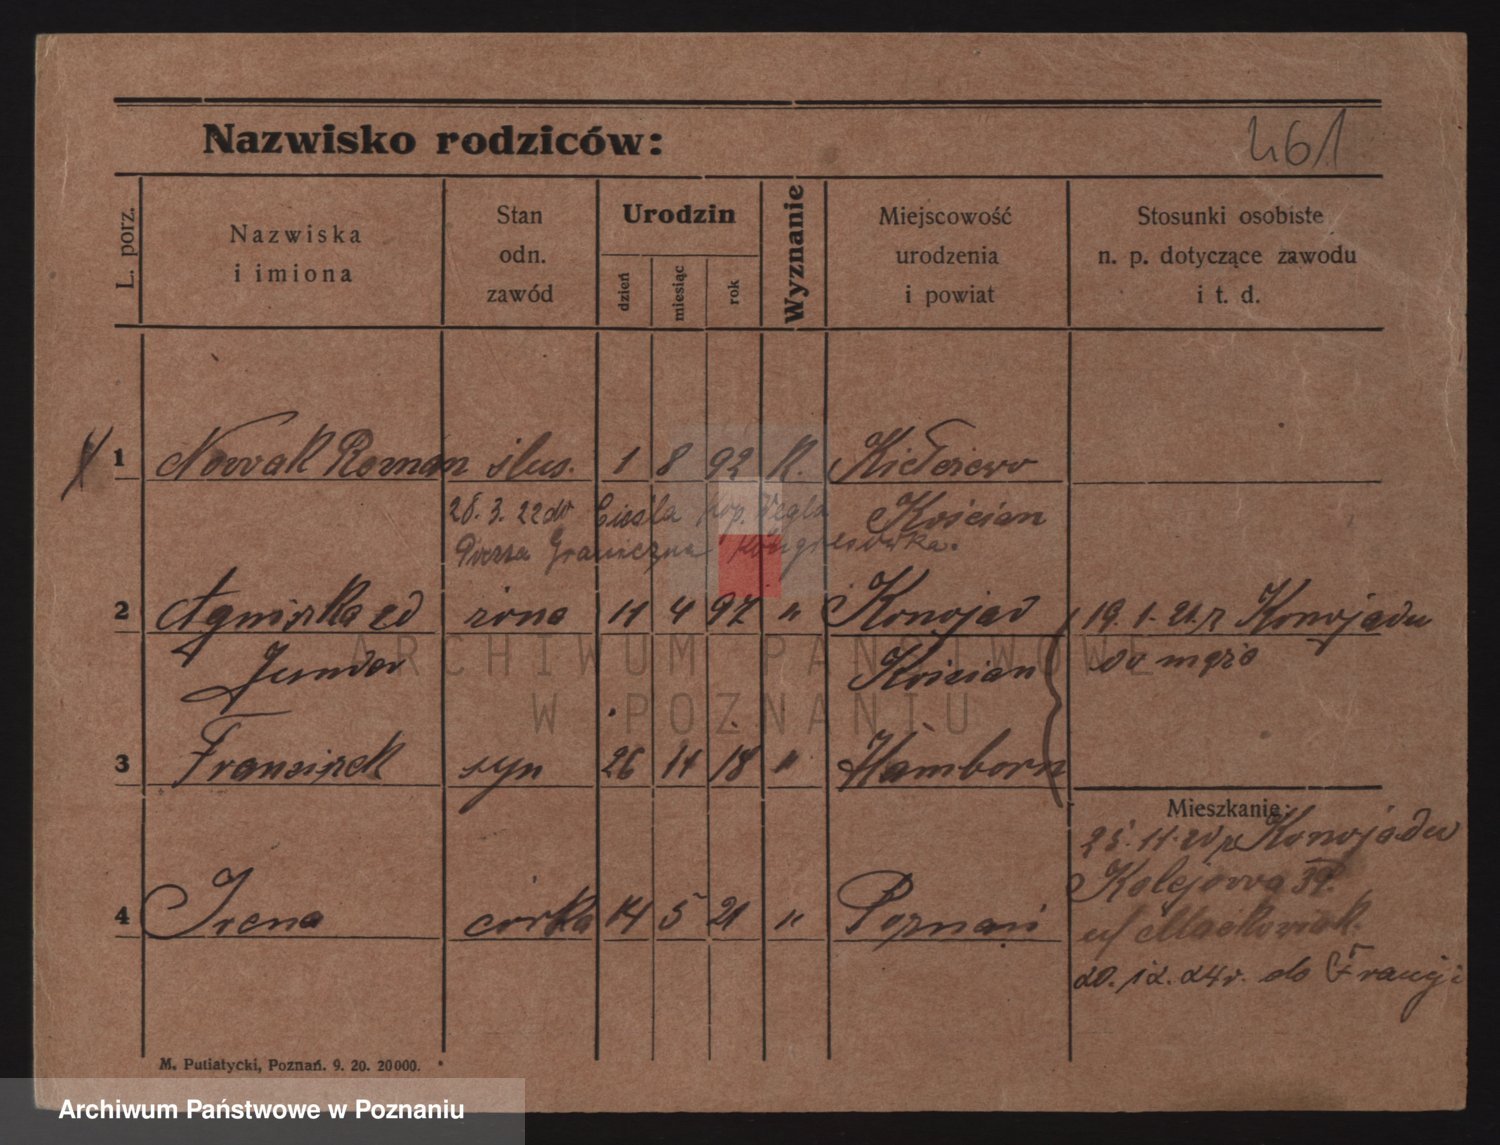 Nazwisko rodziców:
461
L. porz.
Nazwiska
i imiona
Stan
odn.
zawód
Urodzin
dzień
miesiąc
rok
Wyznanie
Miejscowość
urodzenia
i powiat
Stosunki osobiste
n. p. dotyczące zawodu
i t. d.
1 Nowak Roman ślus. 1 8 92 K. Kiełczewo
28. 3. 22 do Cieśla pop.
Kościan
Poczta Graniczna Kongresówka.
2 Agnieszka zd żona 11 4 97 " Konojad
19. 1. 21. z Konojadu
Kościan
do męża
ARCHIWUM PAŃSTWOWE
W POZNANIU
3 Franciszek syn 26 11 18 " Hamborn
Mieszkanie:
25. 11. 20 z Konojadu
Kolejowa 39.
4 Irena córka 14 5 21 " Poznań
u/ Maćkowiak.
20. 12. 24r. do Francji
M. Putiatycki, Poznań. 9. 20. 20000.
Archiwum Państwowe w Poznaniu